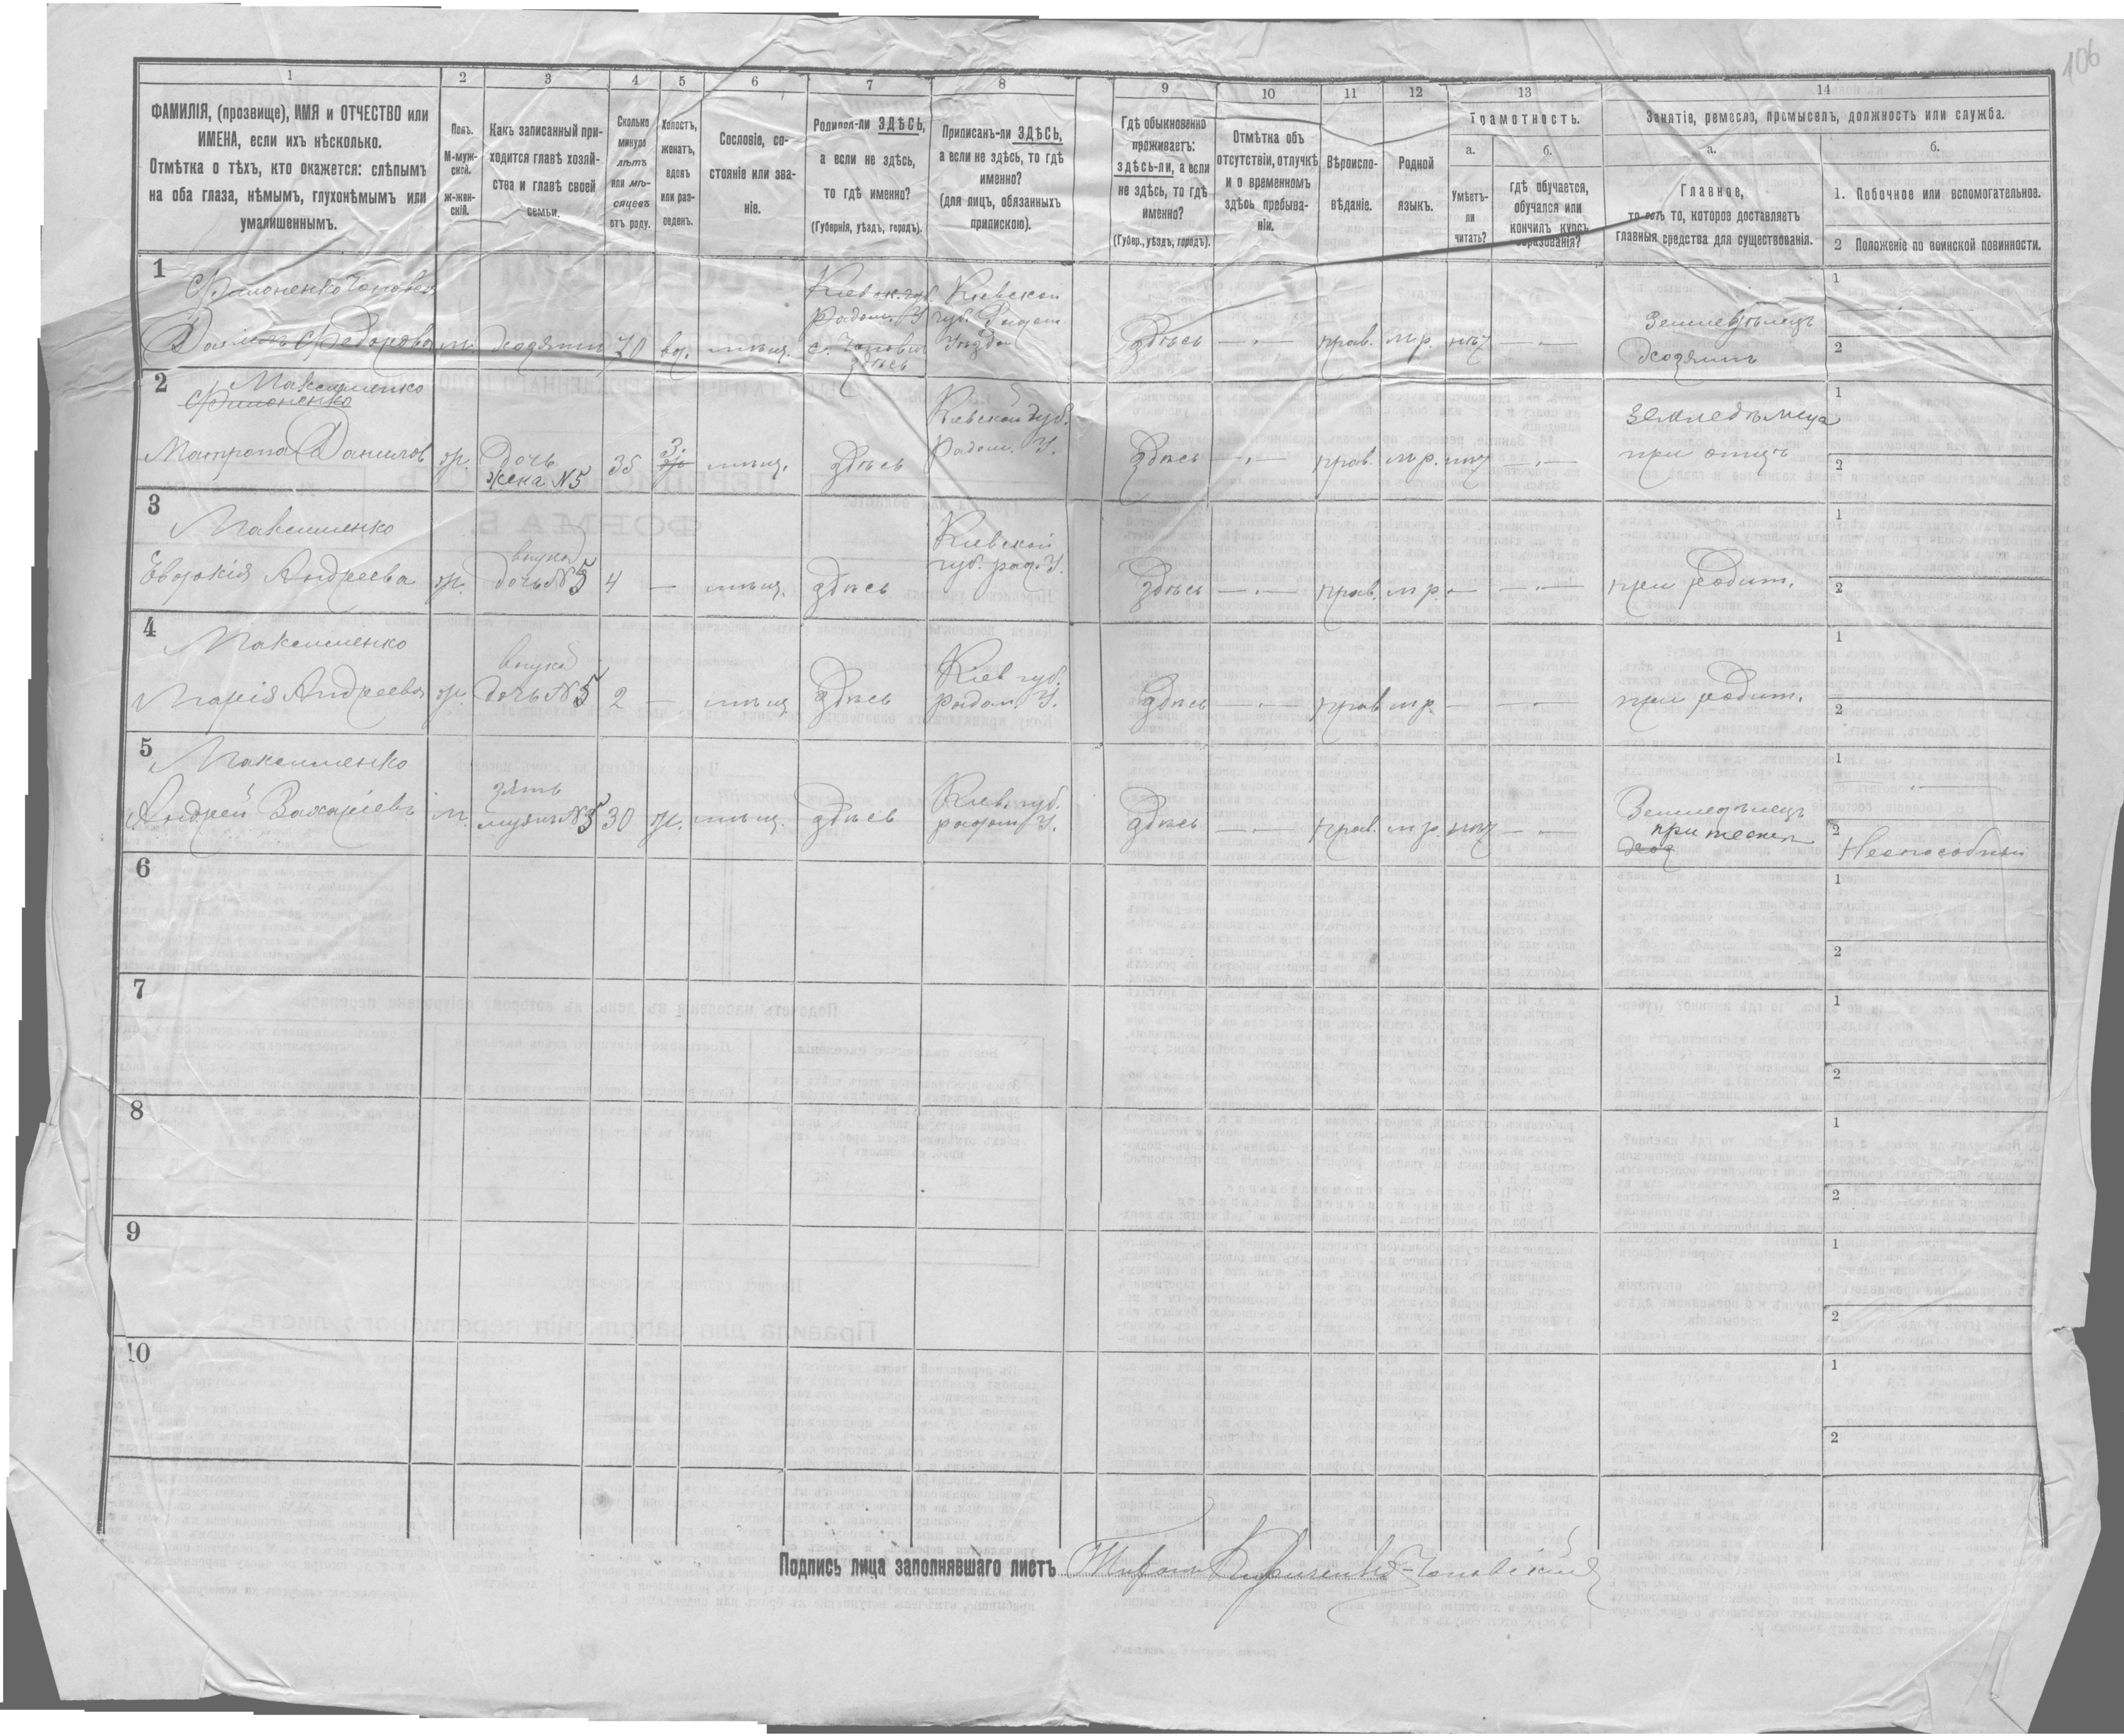 106
1 2 3 4 5 6 7 8 9 10 11 12 13 14
ФАМИЛІЯ, (прозвище), ИМЯ и ОТЧЕСТВО или
ИМЕНА, если ихъ нѣсколько.
Отмѣтка о тѣхъ, кто окажется: слѣпымъ
на оба глаза, нѣмымъ, глухонѣмымъ или
умалишеннымъ.
Полъ.
М-муж-
ской.
ж-жен-
скій.
Какъ записанный при-
ходится главѣ хозяй-
ства и главѣ своей
семьи.
Сколько
минуло
лѣтъ
или мѣ-
сяцевъ
отъ роду.
Холостъ,
женатъ,
вдовъ
или раз-
веденъ.
Сословіе, со-
стояніе или зва-
ніе.
Родился-ли ЗДѢСЬ,
а если не здѣсь,
то гдѣ именно?
(Губернія, уѣздъ, городъ).
Приписанъ-ли ЗДѢСЬ,
а если не здѣсь, то гдѣ
именно?
(для лицъ, обязанныхъ
припискою).
Гдѣ обыкновенно
проживаетъ:
ЗДѢСЬ-ли, а если
не здѣсь, то гдѣ
именно?
(Губер., уѣздъ, городъ).
Отмѣтка объ
отсутствіи, отлучкѣ
и о временномъ
здѣсь пребыва-
ніи.
Вѣроиспо-
вѣданіе.
Родной
языкъ.
Грамотность.
а.
Умѣетъ-
ли
читать?
б.
гдѣ обучается,
обучался или
кончилъ курсъ
образованія?
Занятіе, ремесло, промыселъ, должность или служба.
а.
Главное,
то есть то, которое доставляетъ
главныя средства для существованія.
б.
1. Побочное или вспомогательное.
2 Положеніе по воинской повинности.
1
Филоненко Чоповск
Даніилъ Федоровъ м. Хозяинъ 70 вд. мѣщ.
Кіевск. губ.
Радом. У.
с. Чоповичи
здѣсь
Кіевской
губ. Радом.
Уѣзда
здѣсь — прав. мр. нѣт —
Земледѣлецъ
Хозяинъ
1
2
2
Максименко
Филоненко
Матрона Данилов ж.
дочь
жена №5
35 З. мѣщ. здѣсь
Кіевской губ.
Радом. У.
здѣсь — прав. мр. нѣт —
Земледѣлица
при отцѣ
1
2
3
Максименко
Евдокія Андреева ж.
внука
дочь №5
4 — мѣщ. здѣсь
Кіевской
губ. рад. У.
здѣсь — прав. мр. — —
при родит.
1
2
4
Максименко
Марія Андреева ж.
внука
дочь №5
2 — мѣщ здѣсь
Кіев губ.
радом. У.
здѣсь — прав мр. — —
при родит.
1
2
5
Максименко
Андрей Захаріевъ м.
зять
мужъ №3
30 ж. мѣщ. здѣсь
Кіев. губ.
радом У.
здѣсь — прав. мр. нѣт —
Земледѣлецъ
при тестѣ
хоз
1
2
Неспособный
6
1
2
7
1
2
8
1
2
9
1
2
10
1
2
Подпись лица заполнявшаго листъ